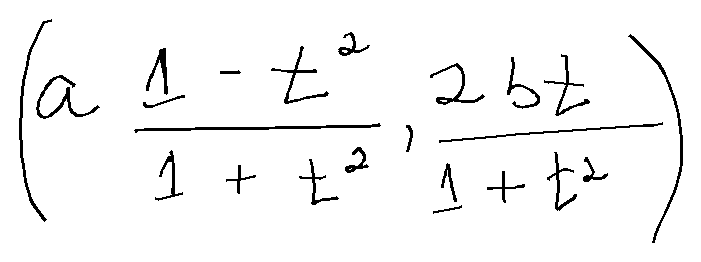 (a \frac{1 - t^2}{1 + t^2}, \frac{2bt}{1 + t^2})